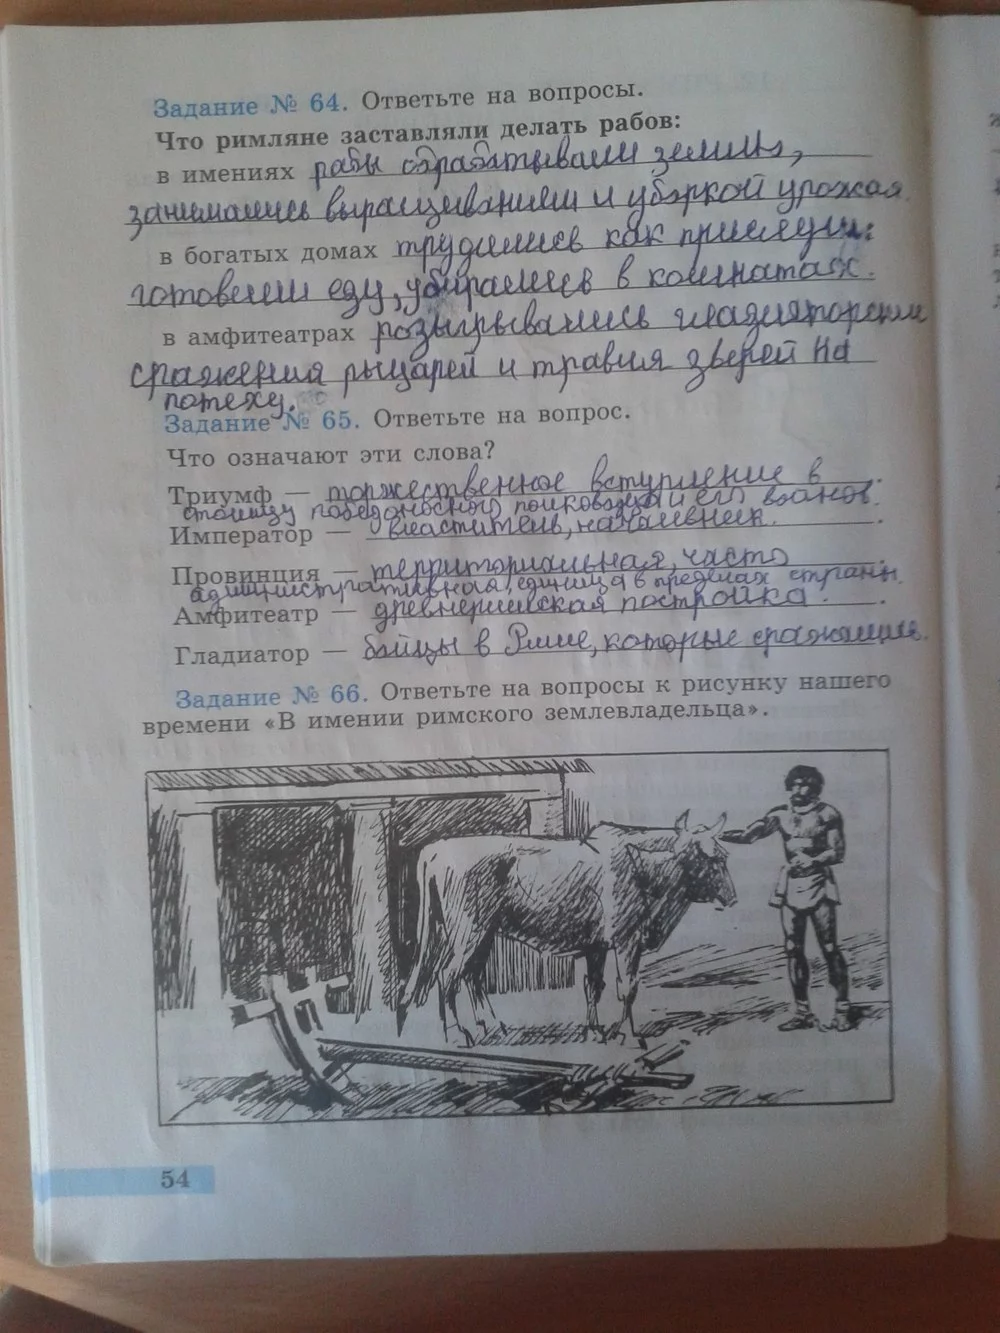 Задание № 64. Ответьте на вопросы.
Что римляне заставляли делать рабов:
в имениях рабы обрабатывали землю,
занимались выращиванием и уборкой урожая.
в богатых домах трудились как прислуги:
готовили еду, убирались в комнатах.
в амфитеатрах розыгрывались гладиаторские
сражения рыцарей и травля зверей на
потеху.
Задание № 65. Ответьте на вопрос.
Что означают эти слова?
Триумф — торжественное вступление в
столицу победоносного полководца и его воинов.
Император — властитель, начальник.
Провинция — территориальная, часто
административная, единица в пределах страны.
Амфитеатр — древнеримская постройка.
Гладиатор — бойцы в Риме, которые сражались.
Задание № 66. Ответьте на вопросы к рисунку нашего
времени «В имении римского землевладельца».
54